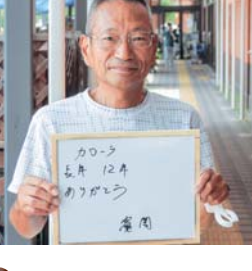 カローラ
長年 12年
ありがとう
濱岡